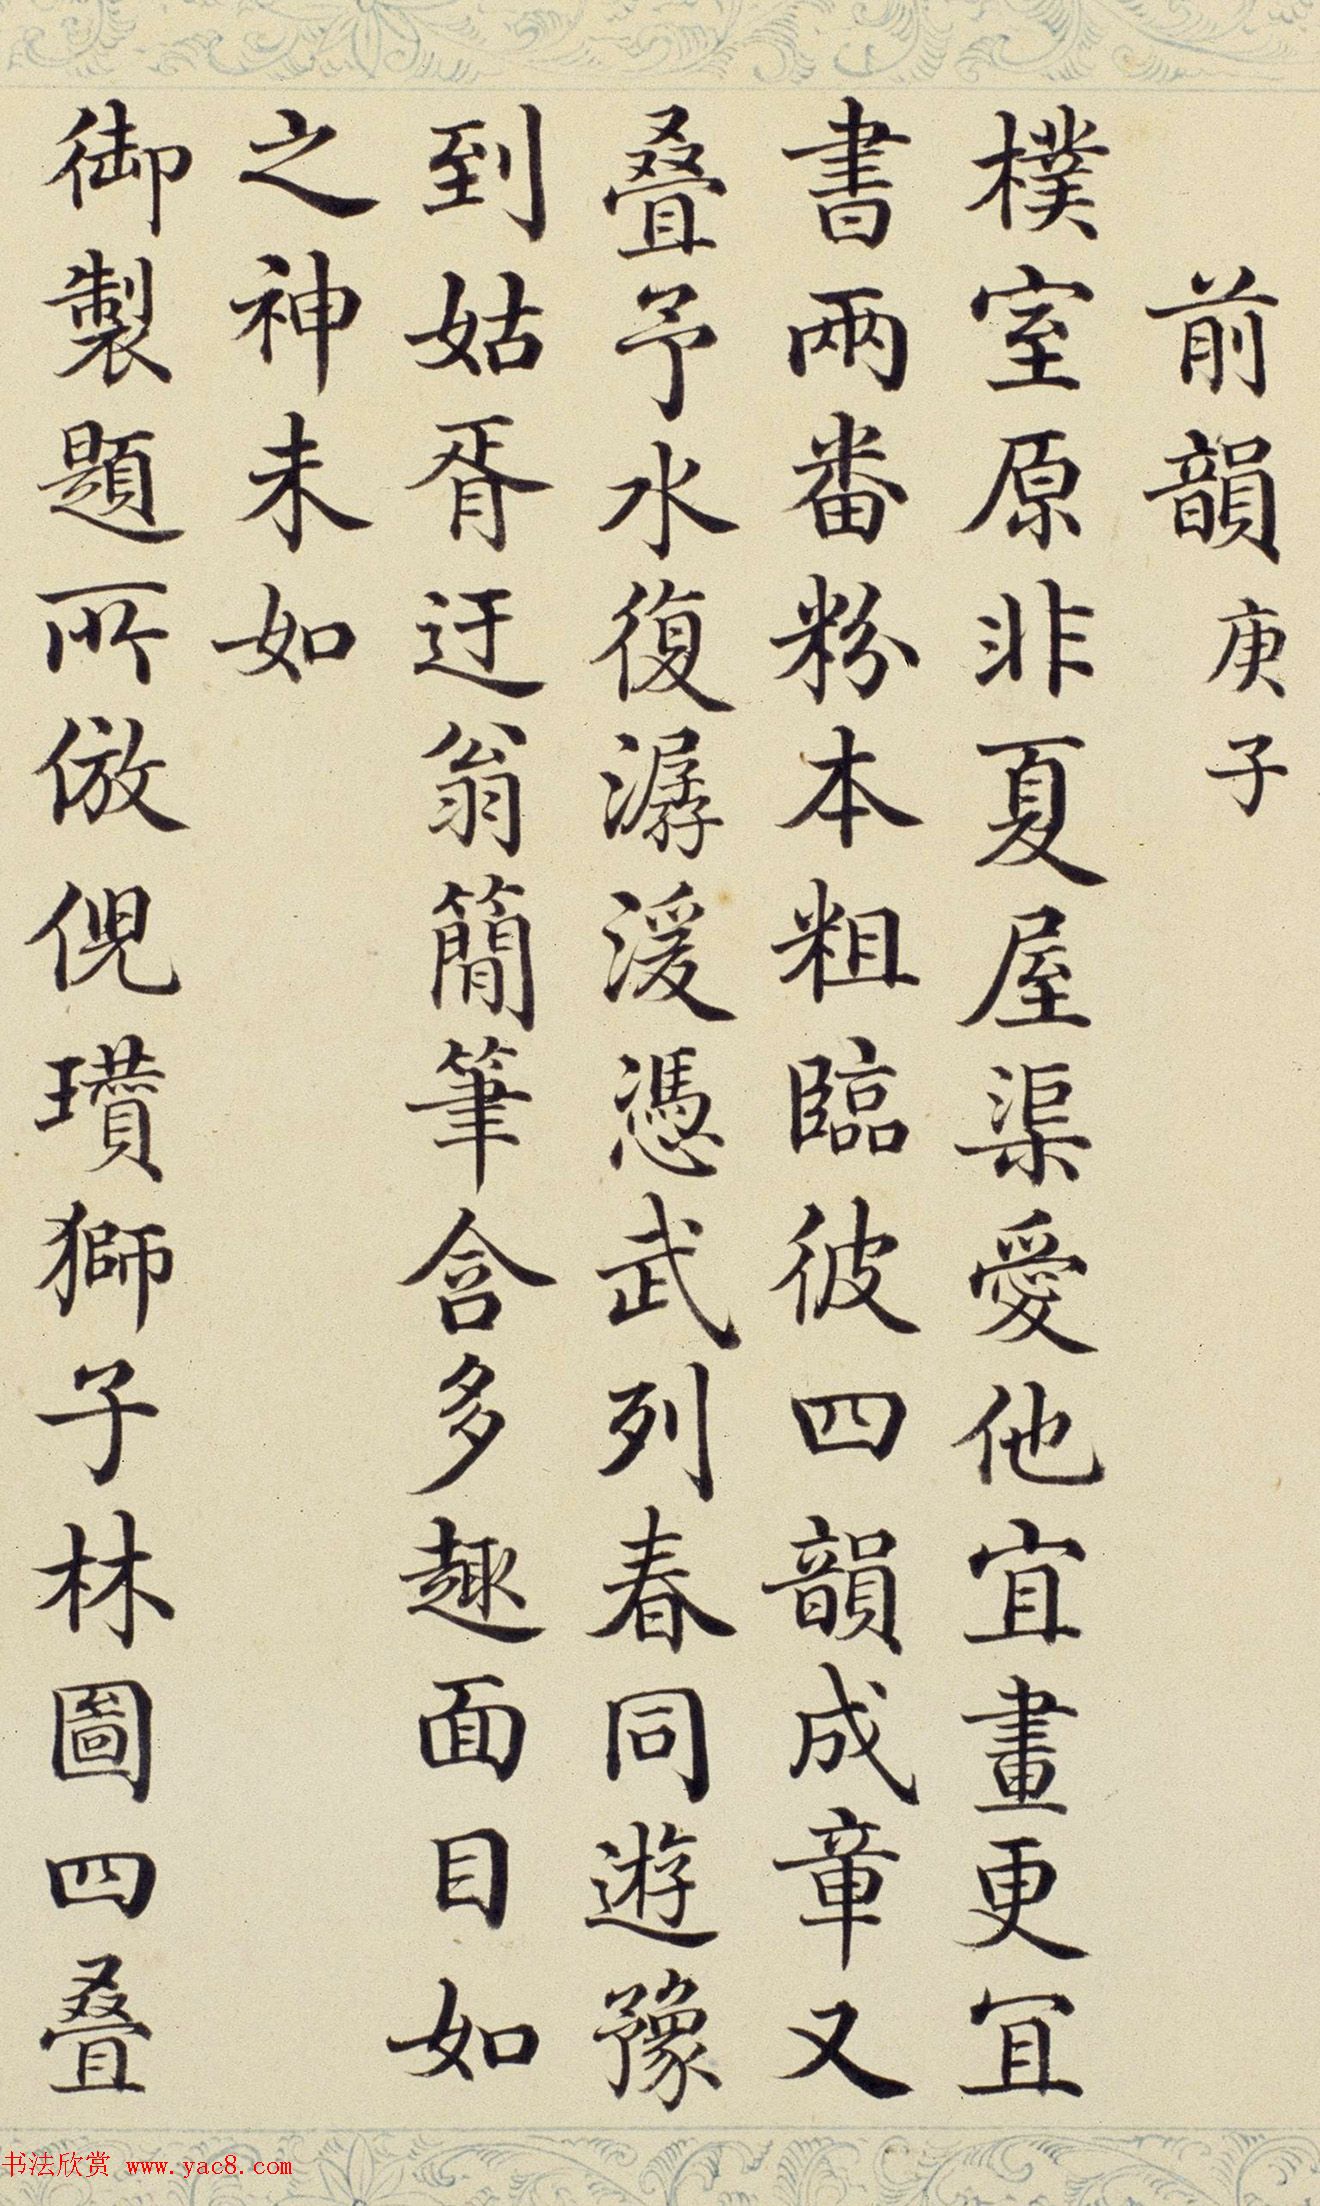 前韻庚子
樸室原非夏屋渠愛他宜畫更宜
書兩番粉本粗臨彼四韻成章又
叠予水復潺湲憑武列春同遊豫
到姑胥迂翁簡筆含多趣面目如
之神未如
御製題所倣倪瓚獅子林圖四叠
书法欣赏 www.yac8.com